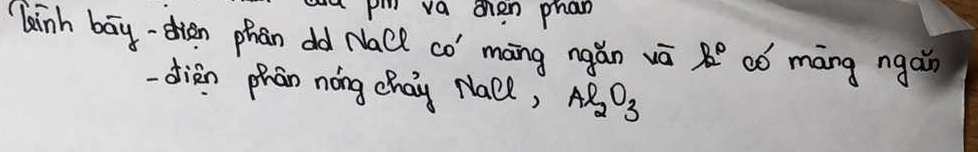 của pin và điện phân
Trình bày - điện phân dd NaCl có màng ngăn và ko có màng ngăn
- điện phân nóng chảy NaCl, Al2O3